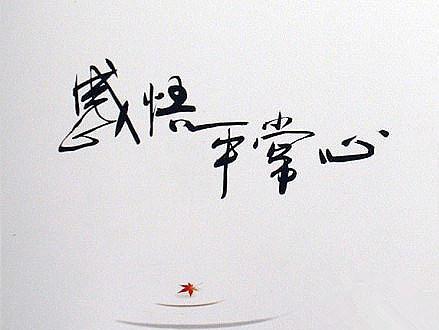 感悟
平常心